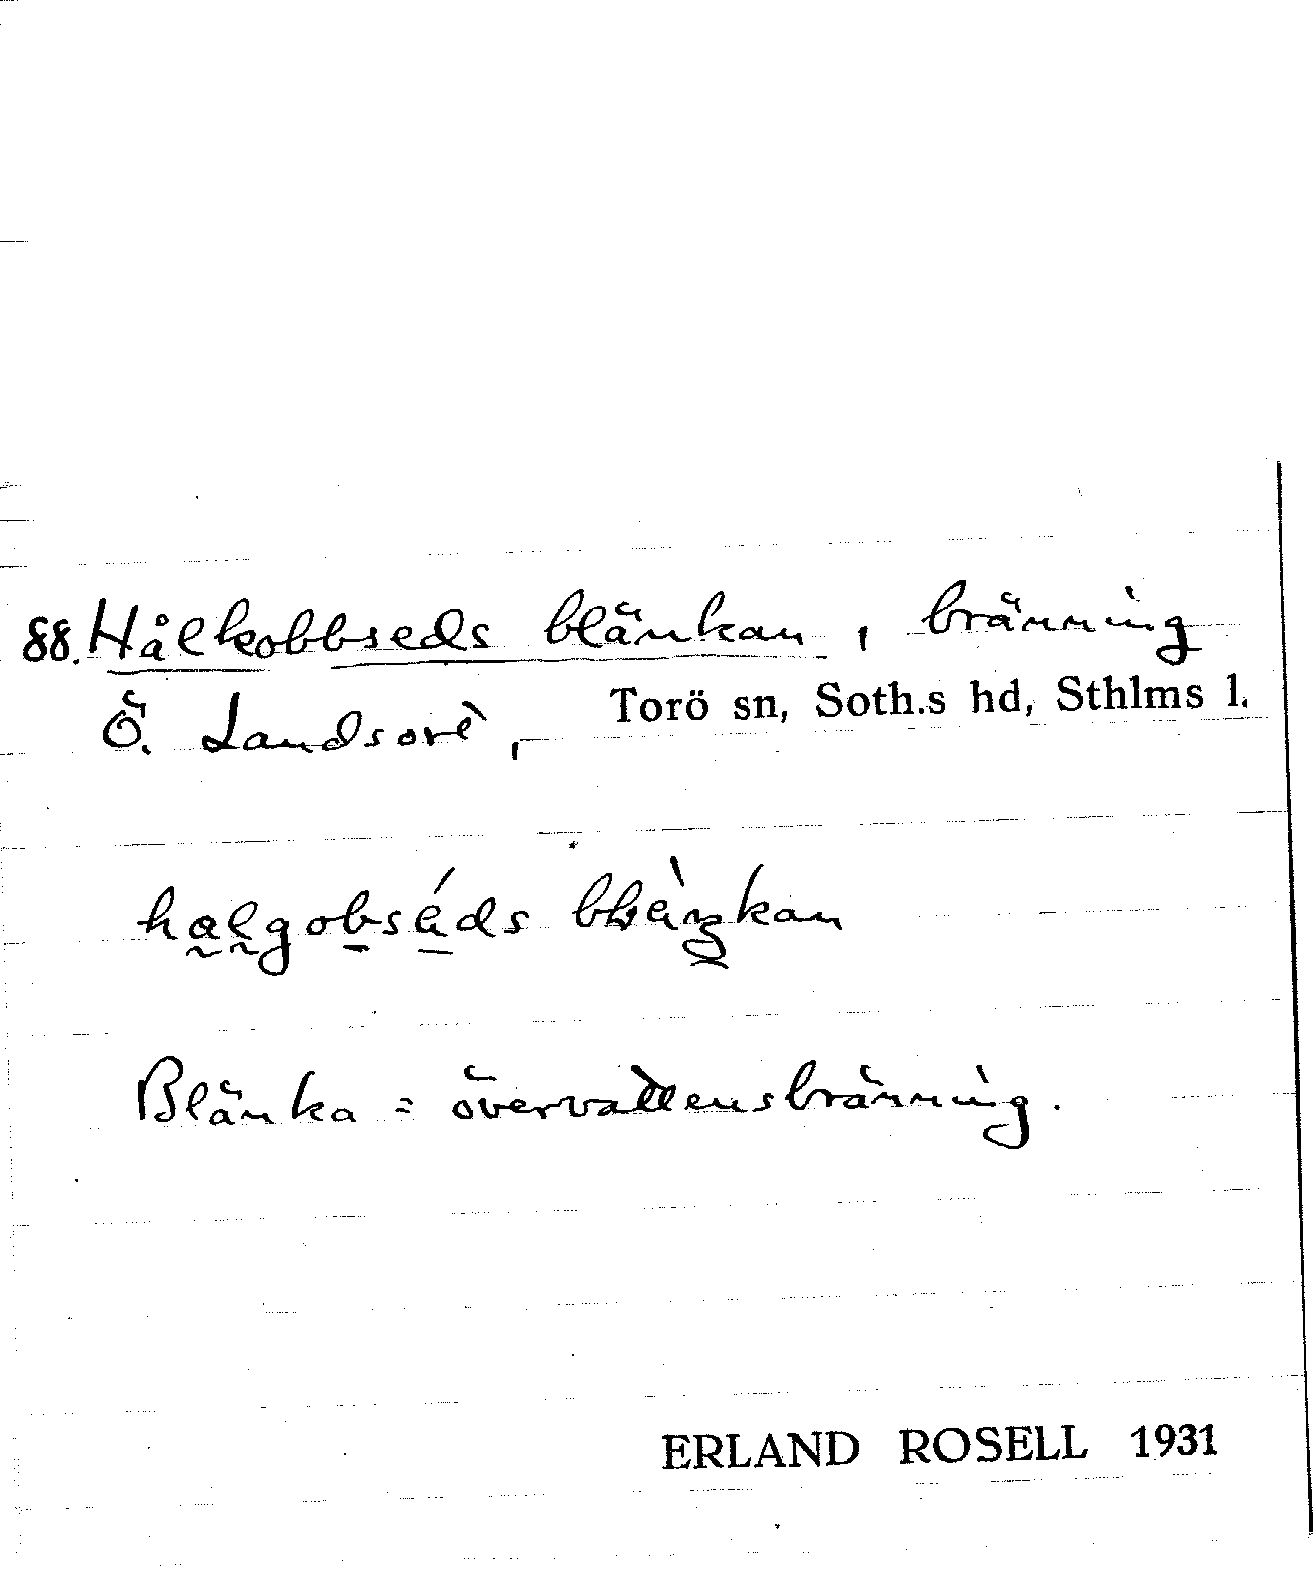 88. Hålkobbseds blänkan, bränning
Ö. Landsort, Torö sn, Soth.s hd, Sthlms l.
Blänka = övervattensbränning.
ERLAND ROSELL 1931